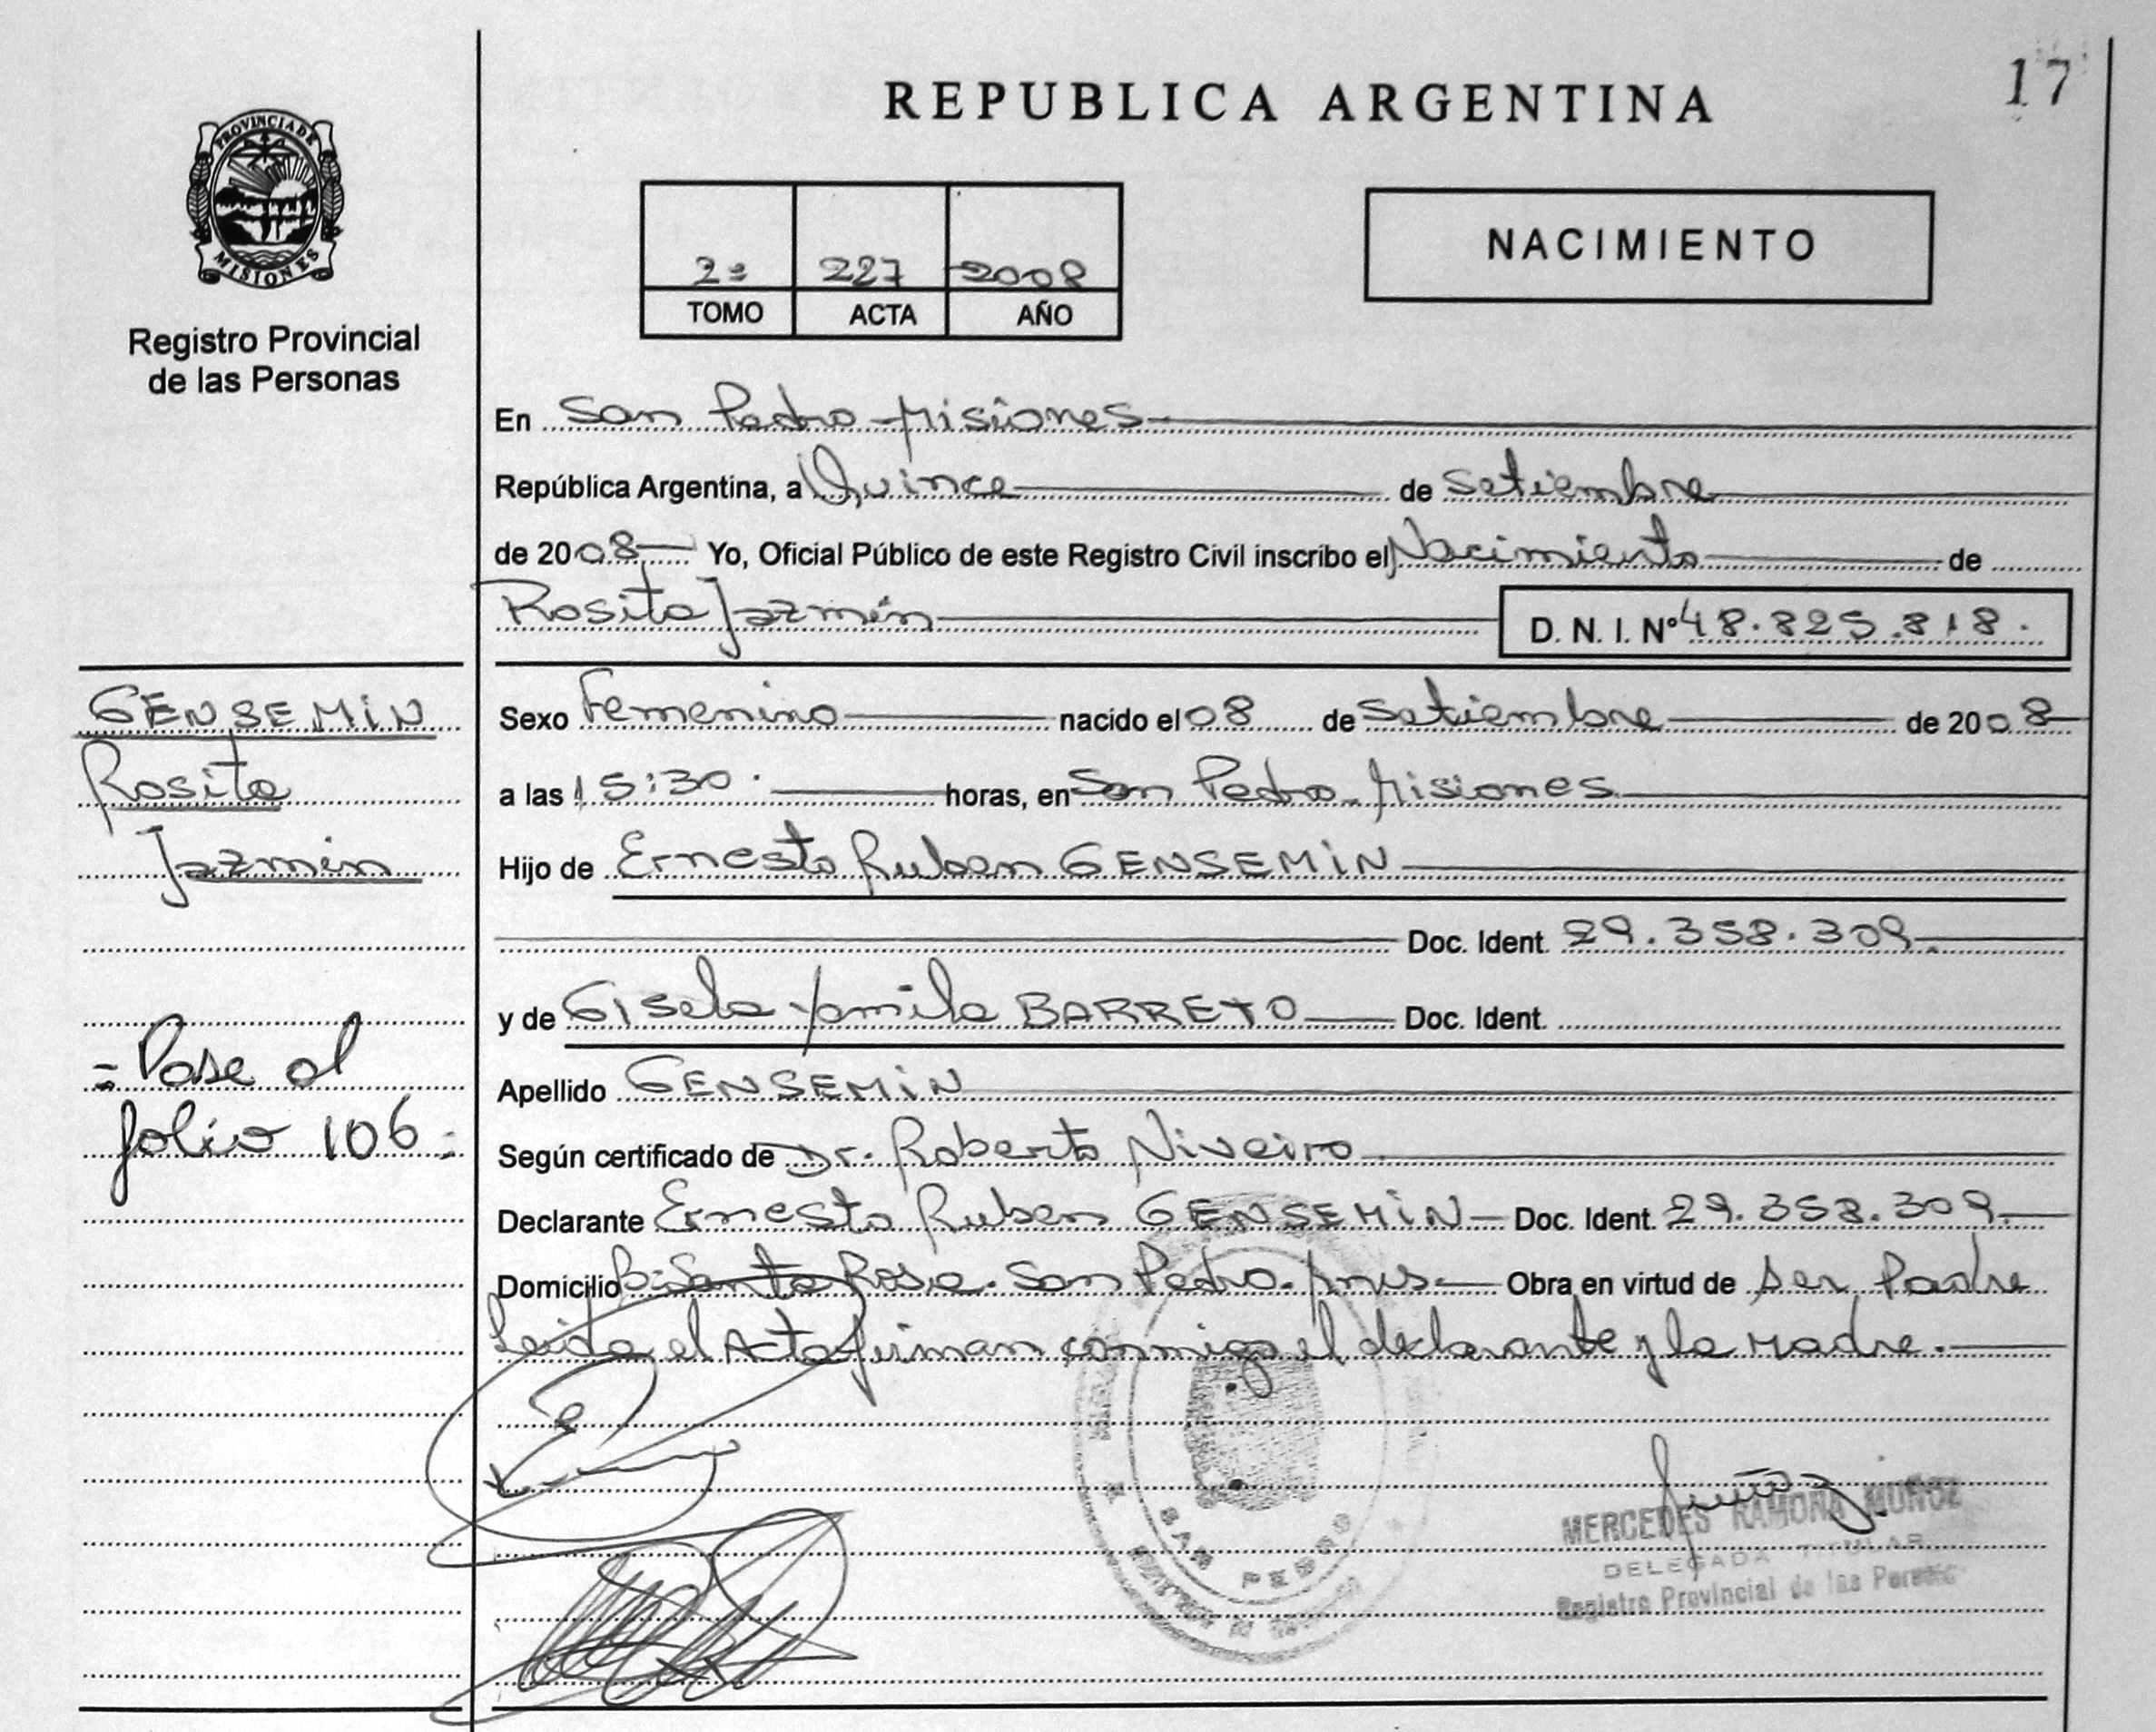 17
REPUBLICA ARGENTINA
PROVINCIA DE
MISIONES
Registro Provincial
de las Personas
2º 227 2008
TOMO ACTA AÑO
NACIMIENTO
En San Pedro Misiones
República Argentina, a Quince de Setiembre
de 2008 Yo, Oficial Público de este Registro Civil inscribo el Nacimiento de
Rosita Jazmín D. N. I. Nº 48.825.818.
GENSEMIN
Rosita
Jazmin
= Pase al
folio 106 =
Sexo Femenino nacido el 08 de Setiembre de 2008
a las 15:30. horas, en San Pedro Misiones
Hijo de Ernesto Ruben GENSEMIN
Doc. Ident. 29.358.309.
y de Gisela Yamila BARRETO Doc. Ident.
Apellido GENSEMIN
Según certificado de Dr. Roberto Niveiro
Declarante Ernesto Ruben GENSEMIN Doc. Ident. 29.358.309.
Domicilio Bº Santa Rosa. San Pedro. Mis Obra en virtud de ser Padre
Leida el Acta firman conmigo el declarante y la Madre.
SAN PEDRO
MERCEDES RAMONA MUÑOZ
DELEGADA TITULAR
Registro Provincial de las Personas